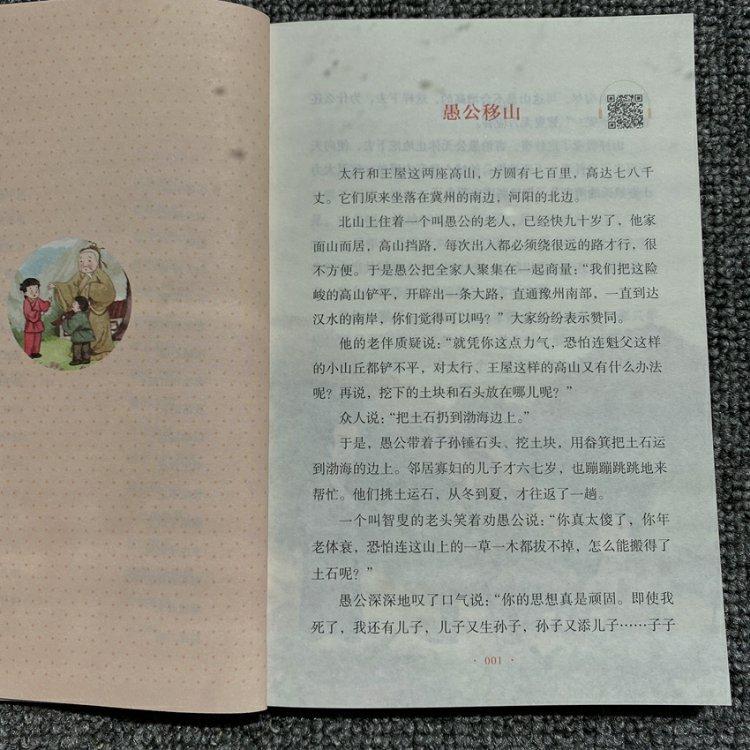 愚公移山
太行和王屋这两座高山，方圆有七百里，高达七八千
丈。它们原来坐落在冀州的南边，河阳的北边。
北山上住着一个叫愚公的老人，已经快九十岁了，他家
面山而居，高山挡路，每次出入都必须绕很远的路才行，很
不方便。于是愚公把全家人聚集在一起商量：“我们把这险
峻的高山铲平，开辟出一条大路，直通豫州南部，一直到达
汉水的南岸，你们觉得可以吗？”大家纷纷表示赞同。
他的老伴质疑说：“就凭你这点力气，恐怕连魁父这样
的小山丘都铲不平，对太行、王屋这样的高山又有什么办法
呢？再说，挖下的土块和石头放在哪儿呢？”
众人说：“把土石扔到渤海边上。”
于是，愚公带着子孙锤石头、挖土块，用畚箕把土石运
到渤海的边上。邻居寡妇的儿子才六七岁，也蹦蹦跳跳地来
帮忙。他们挑土运石，从冬到夏，才往返了一趟。
一个叫智叟的老头笑着劝愚公说：“你真太傻了，你年
老体衰，恐怕连这山上的一草一木都拔不掉，怎么能搬得了
土石呢？”
愚公深深地叹了口气说：“你的思想真是顽固。即使我
死了，我还有儿子，儿子又生孙子，孙子又添儿子……子子
· 001 ·